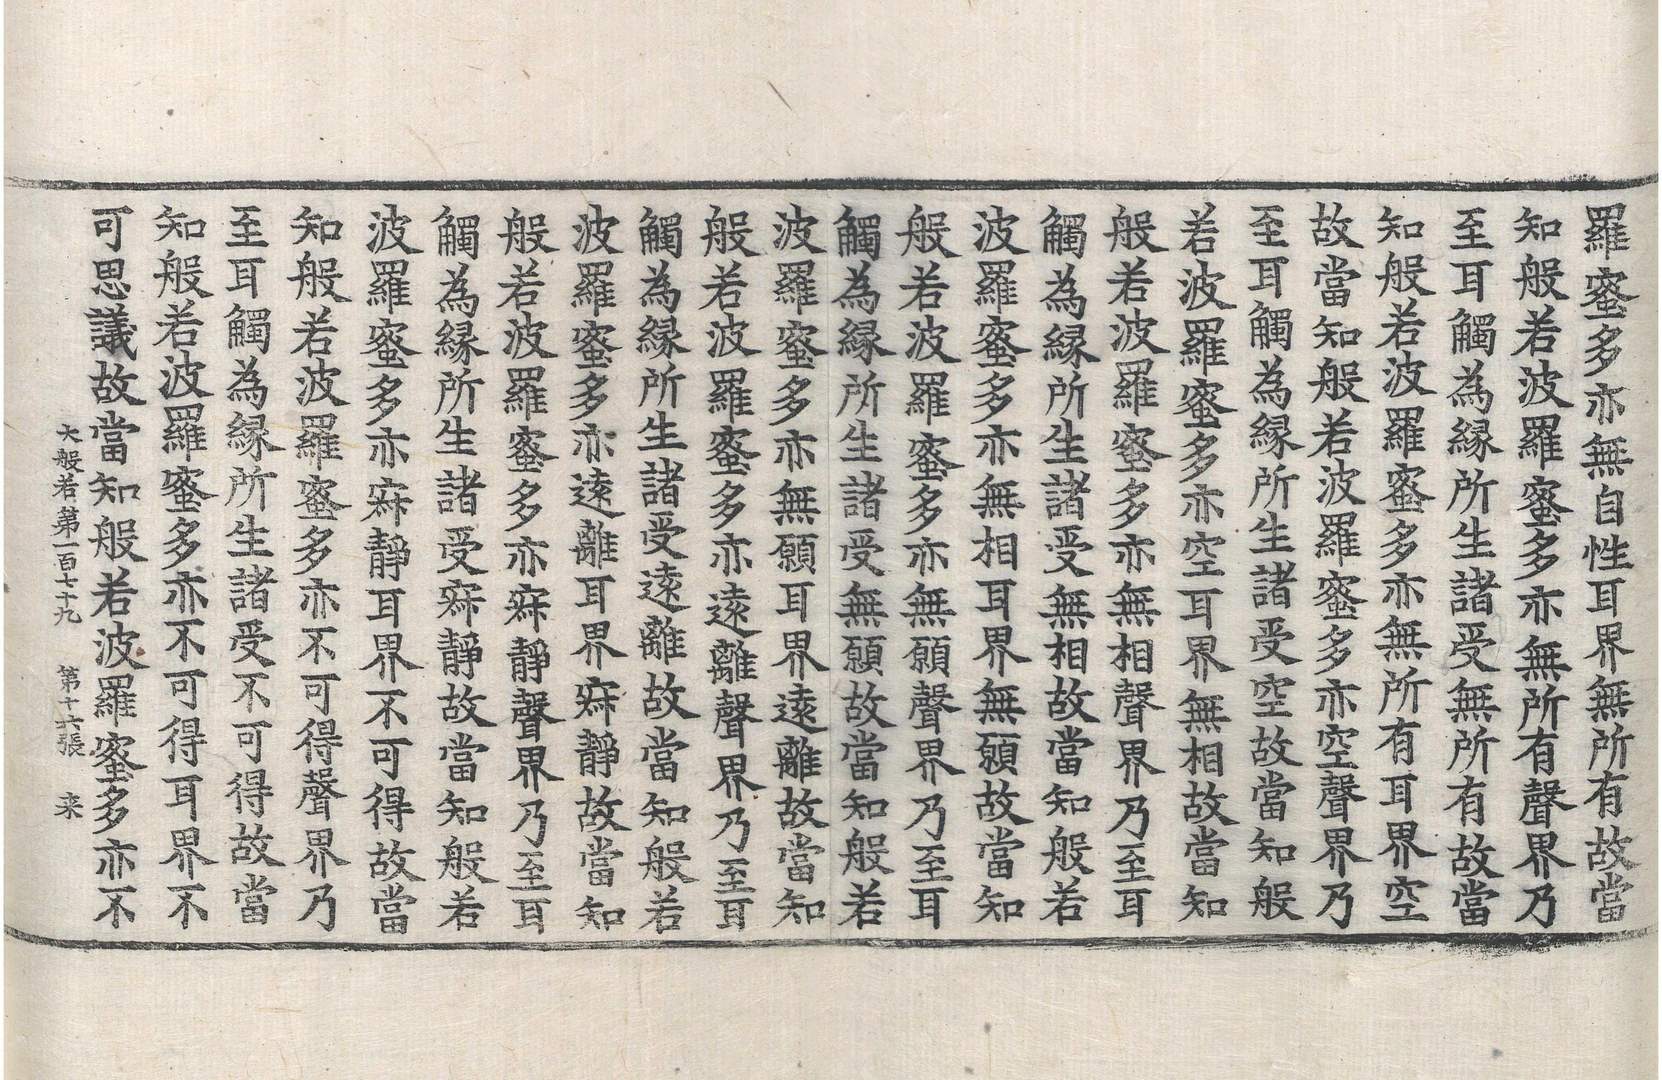 羅蜜多亦無自性耳界無所有故當
知般若波羅蜜多亦無所有聲界乃
至耳觸為緣所生諸受無所有故當
知般若波羅蜜多亦無所有耳界空
故當知般若波羅蜜多亦空聲界乃
至耳觸為緣所生諸受空故當知般
若波羅蜜多亦空耳界無相故當知
般若波羅蜜多亦無相聲界乃至耳
觸為緣所生諸受無相故當知般若
波羅蜜多亦無相耳界無願故當知
般若波羅蜜多亦無願聲界乃至耳
觸為緣所生諸受無願故當知般若
波羅蜜多亦無願耳界遠離故當知
般若波羅蜜多亦遠離聲界乃至耳
觸為緣所生諸受遠離故當知般若
波羅蜜多亦遠離耳界寂靜故當知
般若波羅蜜多亦寂靜聲界乃至耳
觸為緣所生諸受寂靜故當知般若
波羅蜜多亦寂靜耳界不可得故當
知般若波羅蜜多亦不可得聲界乃
至耳觸為緣所生諸受不可得故當
知般若波羅蜜多亦不可得耳界不
可思議故當知般若波羅蜜多亦不
大般若第一百七十九 第十六張 来